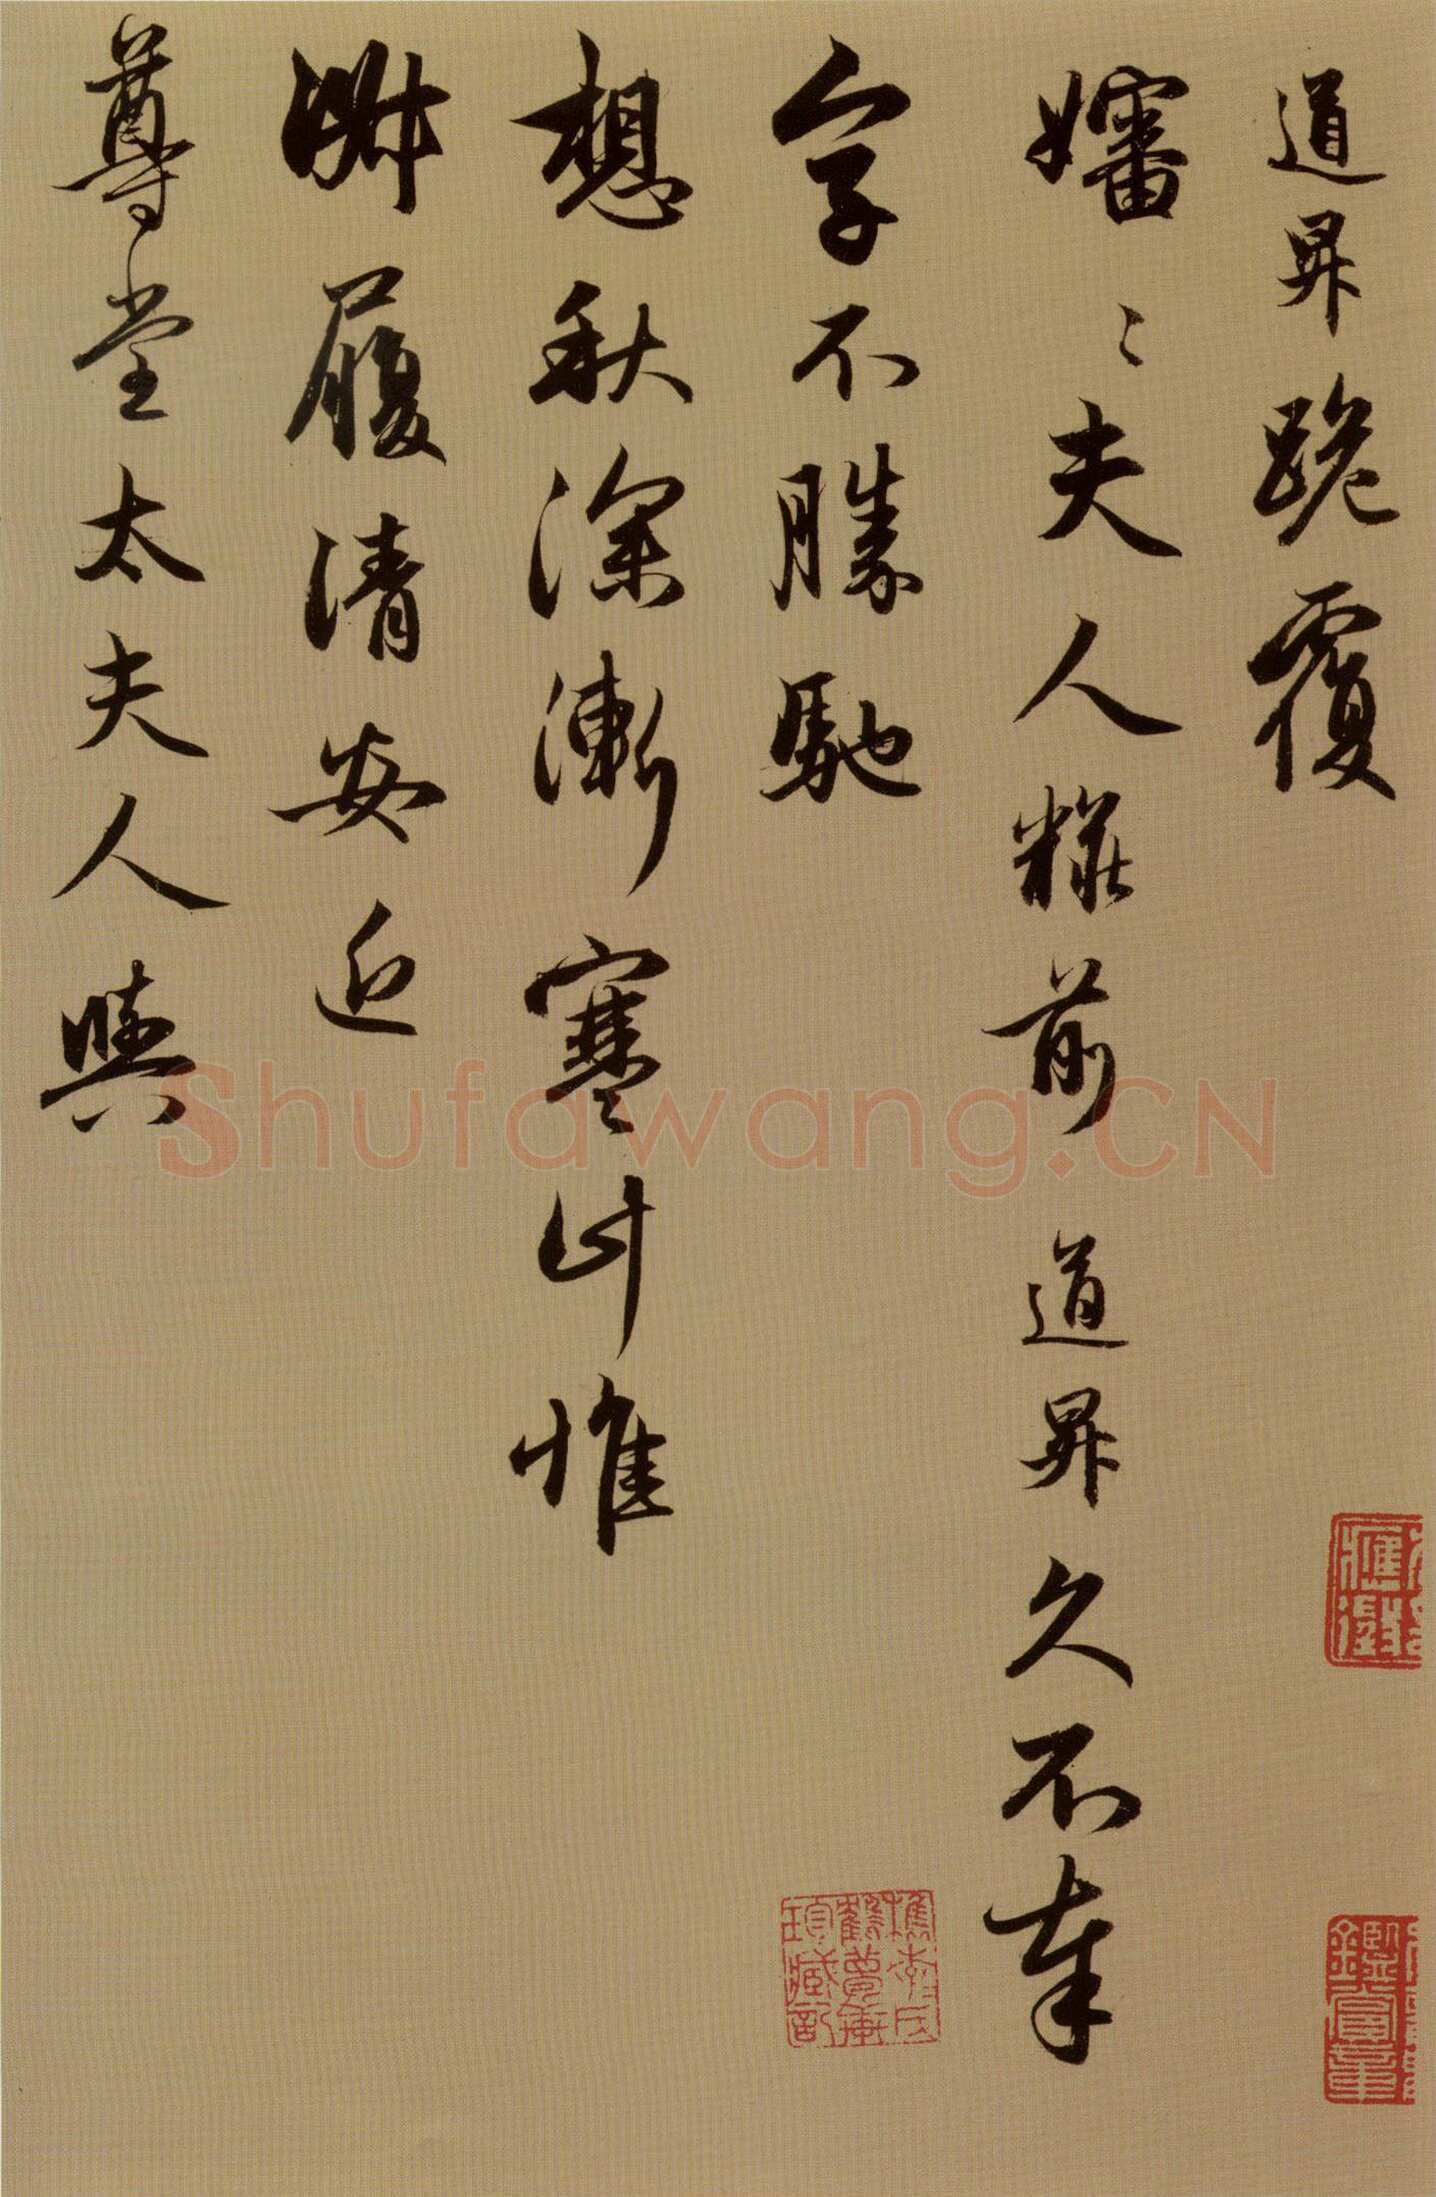 道昇跪覆
嬸〻夫人糚前道昇久不奉
字不勝馳
想秋深漸寒計惟
淑履清安近
尊堂太夫人與
Shufawang.CN